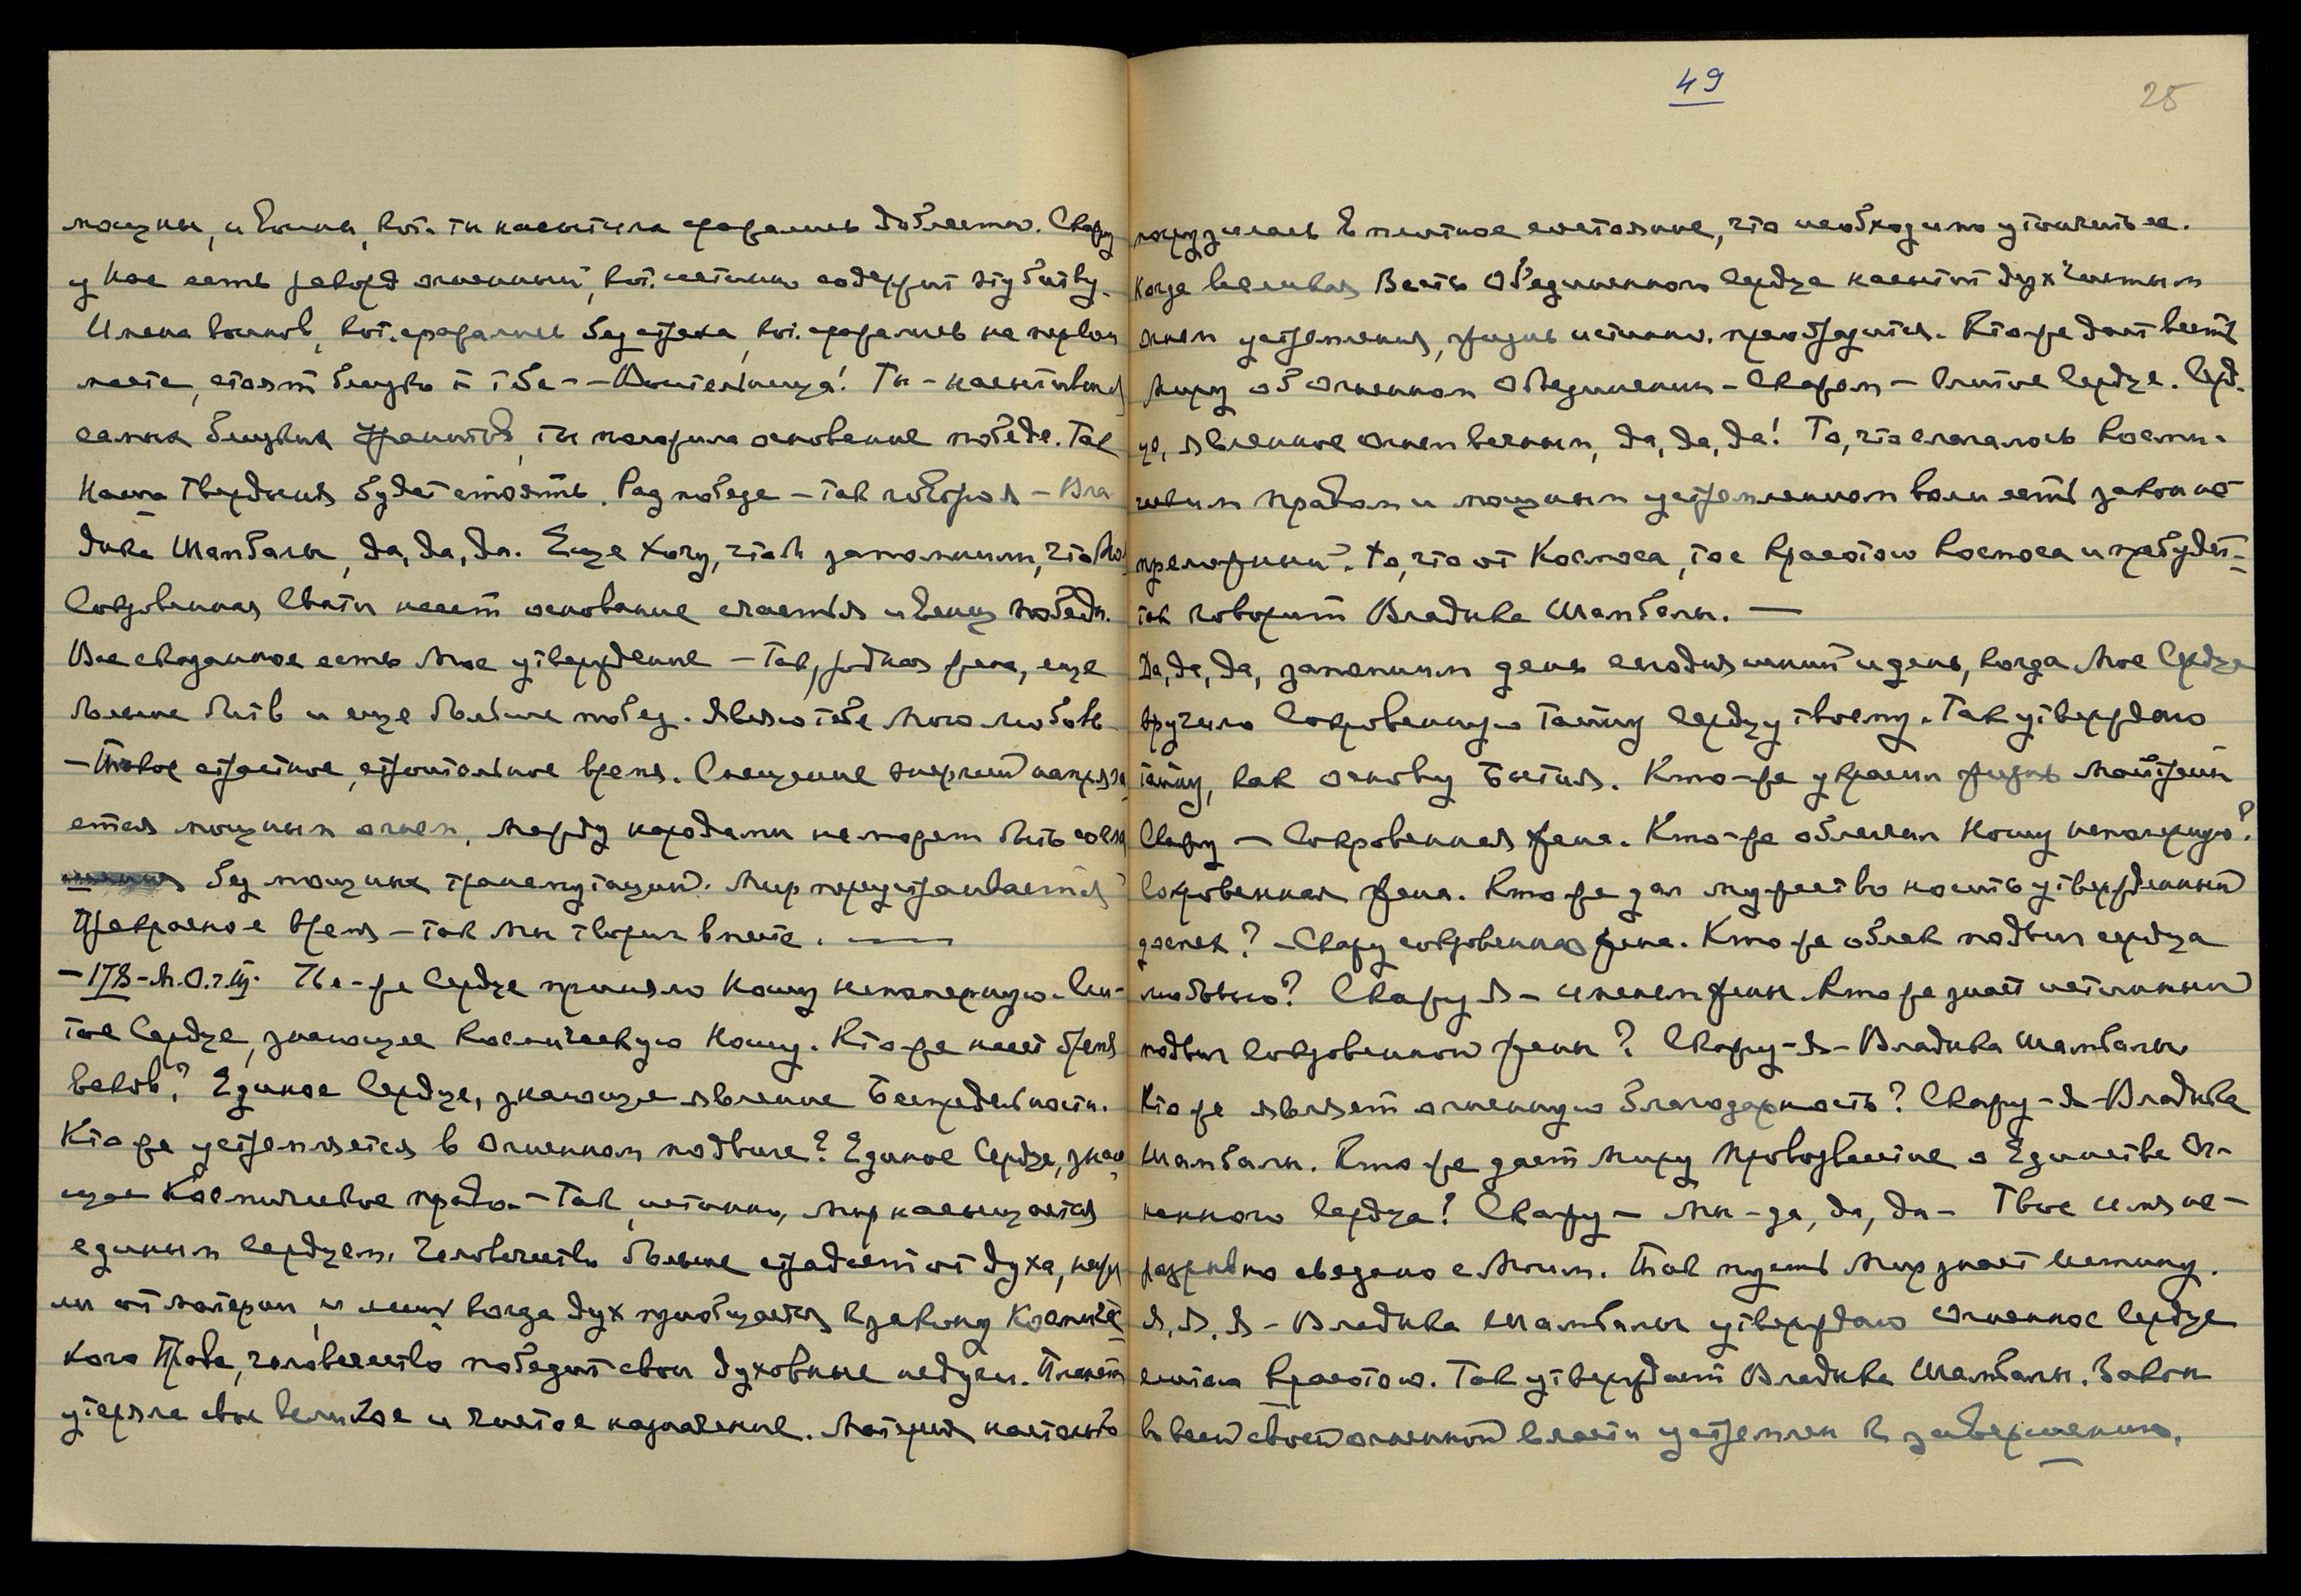 мощны, и воины, кот. ты насытила сражались доблестно. Скажу
у Нас есть рекорд огненный, кот. истинно содержит эту битву.
Имена воинов, кот. сражались без страха, кот. сражались на первом
месте, стоят близко к тебе - - Воительница! Ты - насытившая
самых близких, ты положила основание победе. Так
Наша твердыня будет стоять. Рад победе - так говорю Я - Вла-
дыка Шамбалы, да, да, да. Еще хочу, чтоб запомнили, что Моя
Сокровенная Свати несет основание счастья и венец победы.
Все сказанное есть Мое утверждение - Так, родная жена, еще
больше битв и еще больше побед. Являю тебе Мою любовь
- Такое страстное, строительное время. Смещение энергий напряга-
ется мощным огнем, между народами не может быть
без мощных трансмутаций. Мир переустраивается
Прекрасное время - так Мы творим вместе. —
- 178 - М.О.ч.III. Чье-же Сердце приняло Ношу непомерную. Слит-
тое Сердце, знающее Космическую Ношу. Кто-же несет бремя
веков? Единое Сердце, знающее явление Беспредельности.
Кто же устремляется в Огненном подвиге? Единое Сердце, знаю-
щее Космическое право. - Так, истинно, Мир насыщается
единым сердцем. Человечество больше страдает от духа, неже-
ли от материи, и лишь когда дух приобщается к закону Космичес-
кого Права, человечество победит свои духовные недуги. Планета
утеряла свое великое и чистое назначение. Материя настолько
49
25
погрузилась в плотное состояние, что необходимо утончить ее.
Когда великая Весть Объединенном Сердце насытит дух чистым
огнем устремления, жизнь истинно преобразится. Кто-же даст весть
Миру об Огненном Объединении - Скажем - Слитое Сердце. Серд-
це, явленное огнем вечным, да, да, да! То, что слагалось Косми-
ческим Правом и мощным устремлением воли есть закон не-
преложный. То, что от Космоса, то с Красотою Космоса и пребудет -
так говорит Владыка Шамбалы. —
Да, да, да, запомним день сегодняшний и день, когда Мое Сердце
вручило Сокровенную Тайну Сердцу твоему. Так утверждаю
тайну, как основу Бытия. Кто-же украсил жизнь Майтрейи
Скажу - Сокровенная жена. Кто-же облегчил Ношу непомерную?
Сокровенная жена. Кто же дал мужество носить утвержденный
доспех? - Скажу сокровенная жена. Кто же облек подвиг сердца
любовью? Скажу Я - именем жены. Кто же знает истинный
подвиг Сокровенной жены? Скажу - Я - Владыка Шамбалы
Кто же являет огненную благодарность? Скажу - Я - Владыка
Шамбалы. Кто же дает Миру Провозвестие о Единстве Ог-
ненного Сердца? Скажу - Мы - да, да, да - Твое имя не-
разрывно связано с Моим. Так пусть Мир знает Истину.
Я, Я, Я - Владыка Шамбалы утверждаю Огненное Сердце
слитым Красотою. Так утверждает Владыка Шамбалы. Закон
во всей своей огненной власти устремлен к завершению.